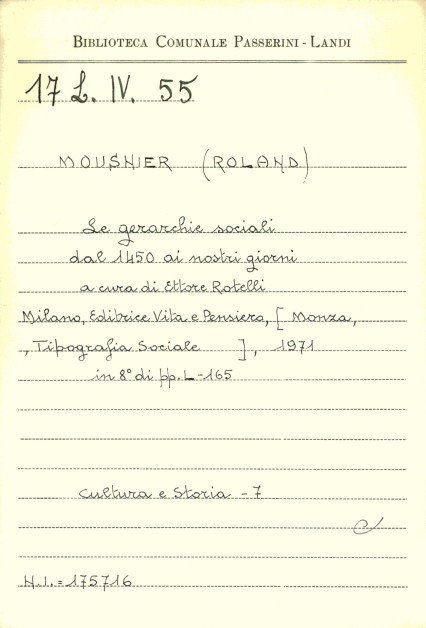 BIBLIOTECA COMUNALE PASSERINI - LANDI
17 L. IV. 55
MOUSNIER (ROLAND)
Le gerarchie sociali
dal 1450 ai nostri giorni
a cura di Ettore Rotelli
Milano, Editrice Vita e Pensiero, [ Monza,
, Tipografia Sociale ], 1971
in 8° di pp. L - 165
Cultura e Storia - 7
N.I. = 175716